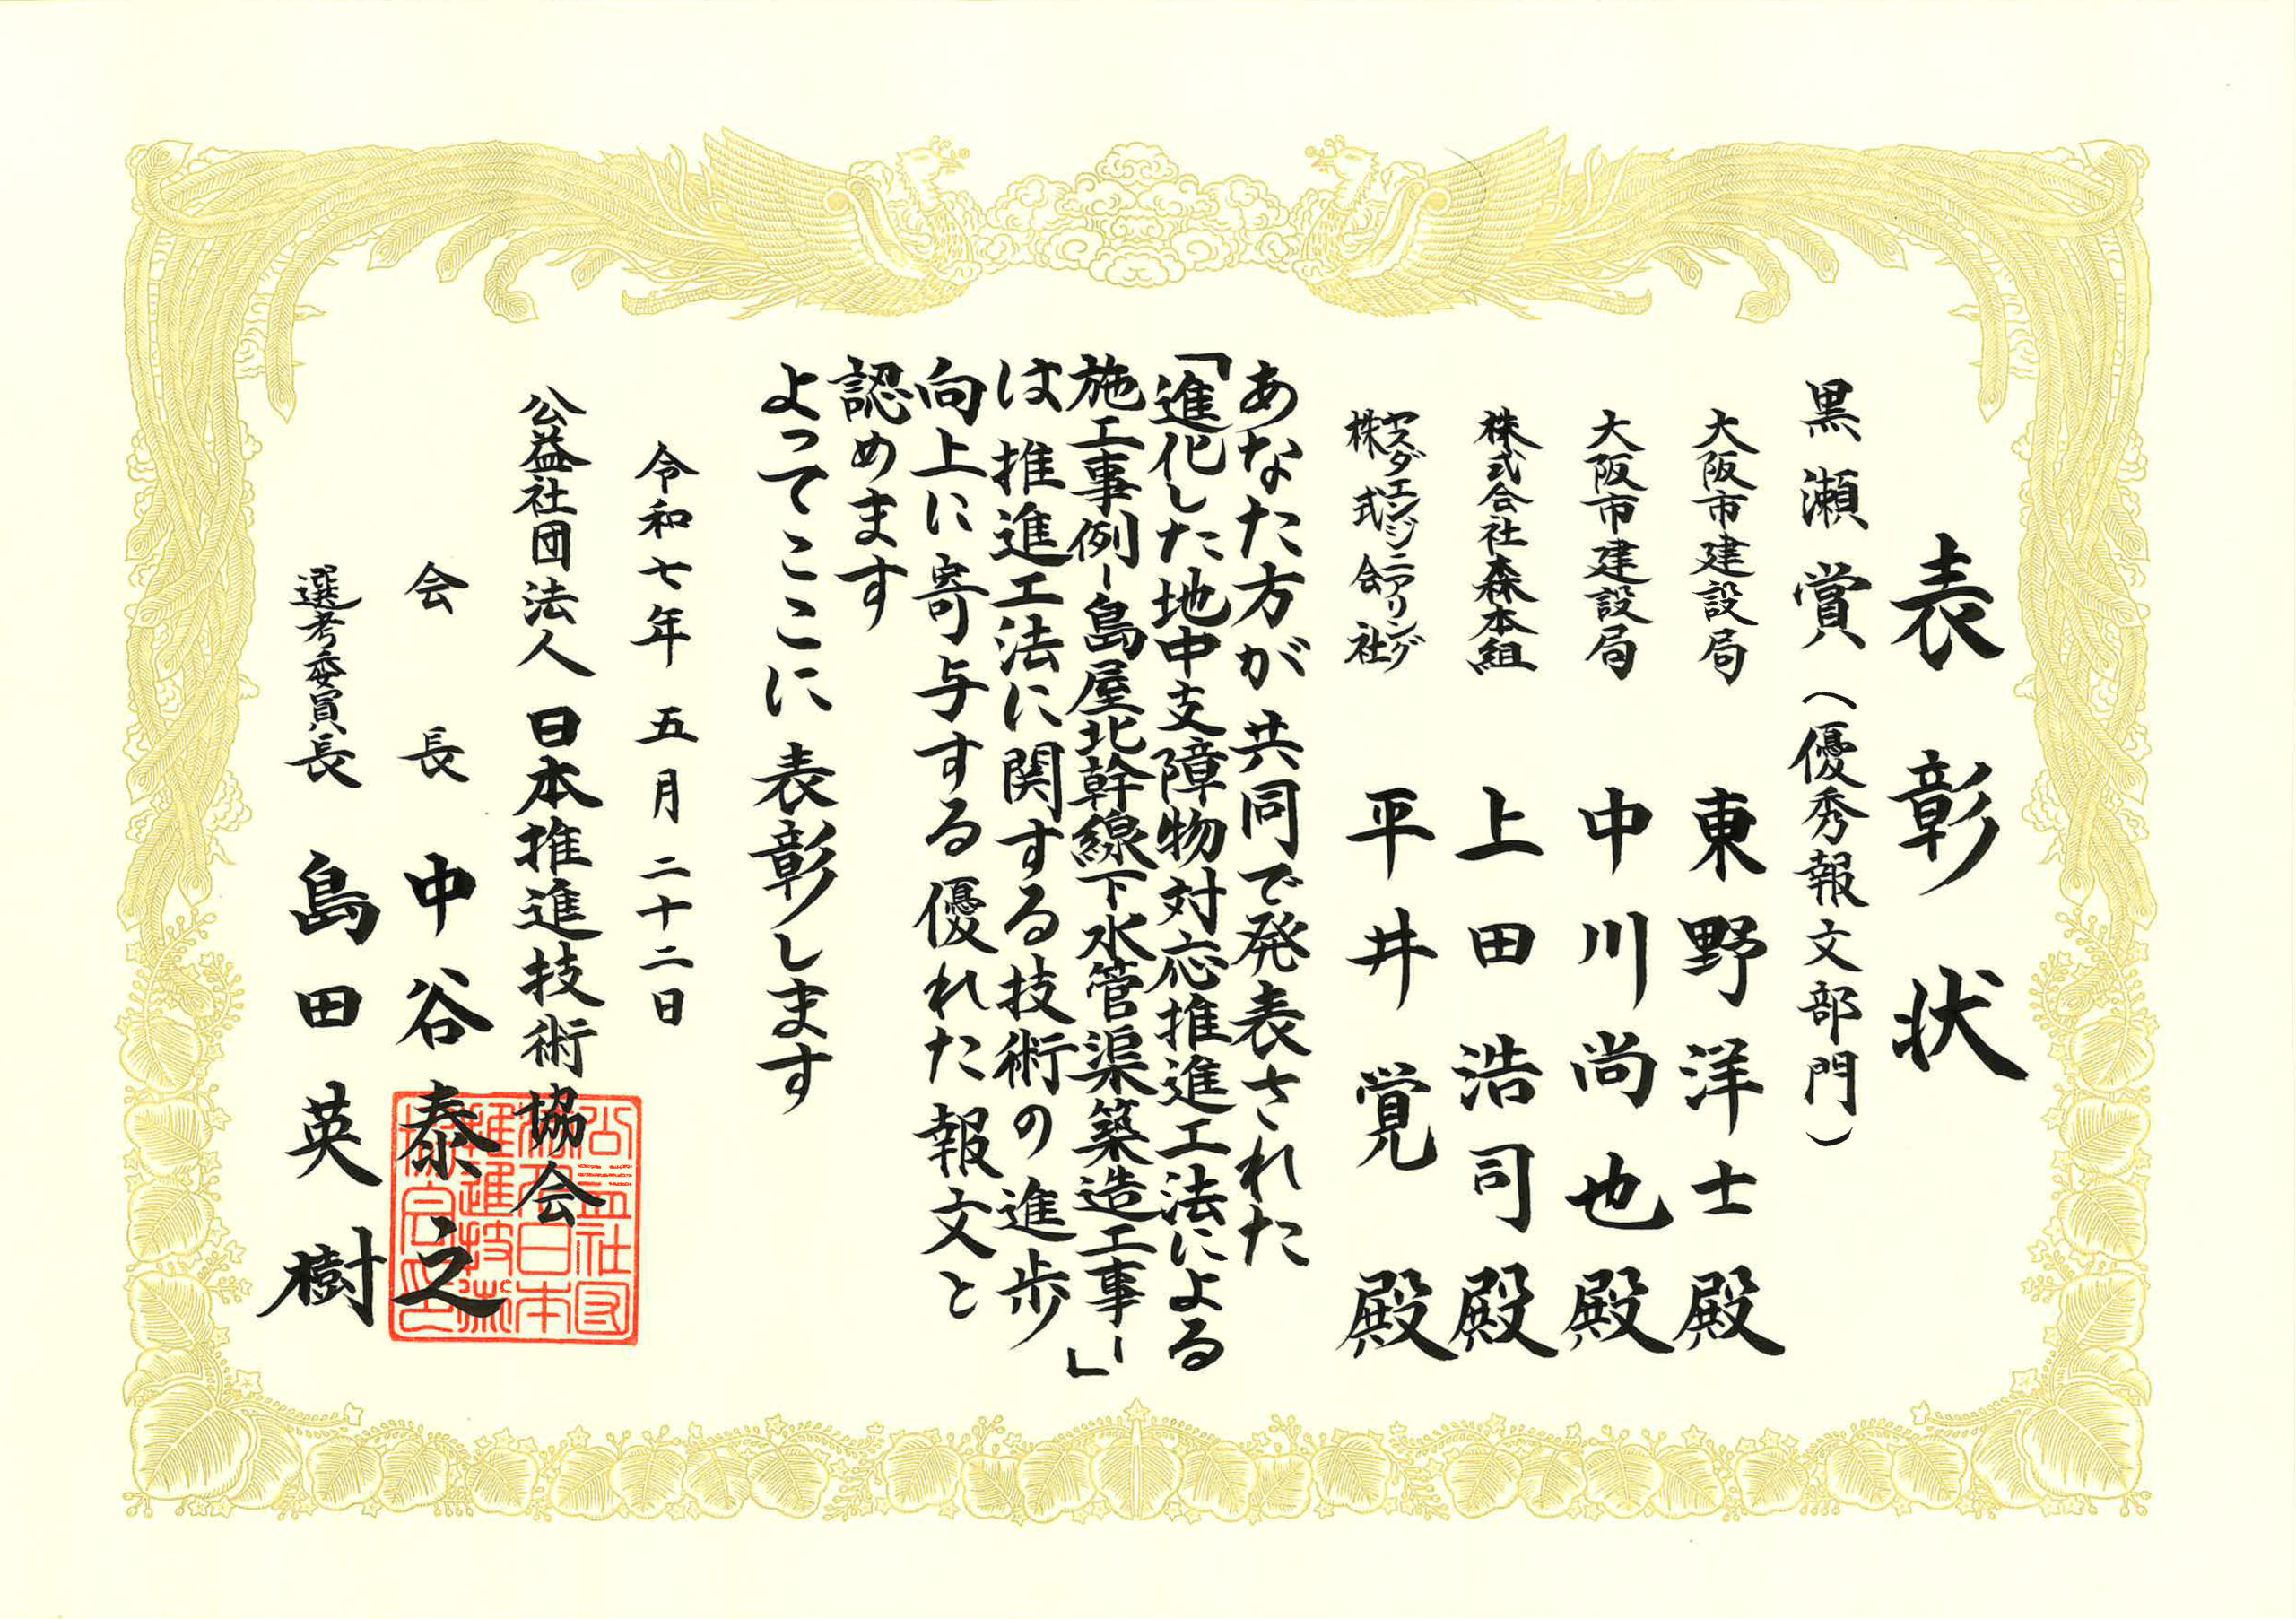 表彰状
黒瀬賞（優秀報文部門）
大阪市建設局 東野洋士殿
大阪市建設局 中川尚也殿
株式会社森本組 上田浩司殿
ヤスダエンジニアリング株式会社 平井覚殿
あなた方が共同で発表された
「進化した地中支障物対応推進工法による
施工事例-島屋北幹線下水管渠築造工事-」
は推進工法に関する技術の進歩
向上に寄与する優れた報文と
認めます
よってここに表彰します
令和七年五月二十二日
公益社団法人日本推進技術協会
会長 中谷泰之
選考委員長 島田英樹